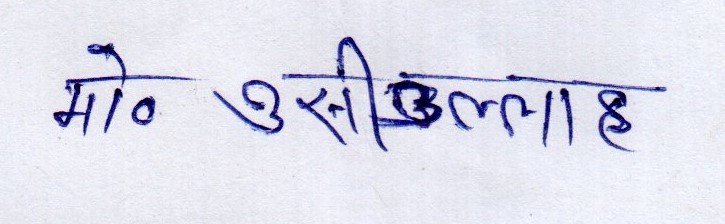 मो० उसीउल्लाह